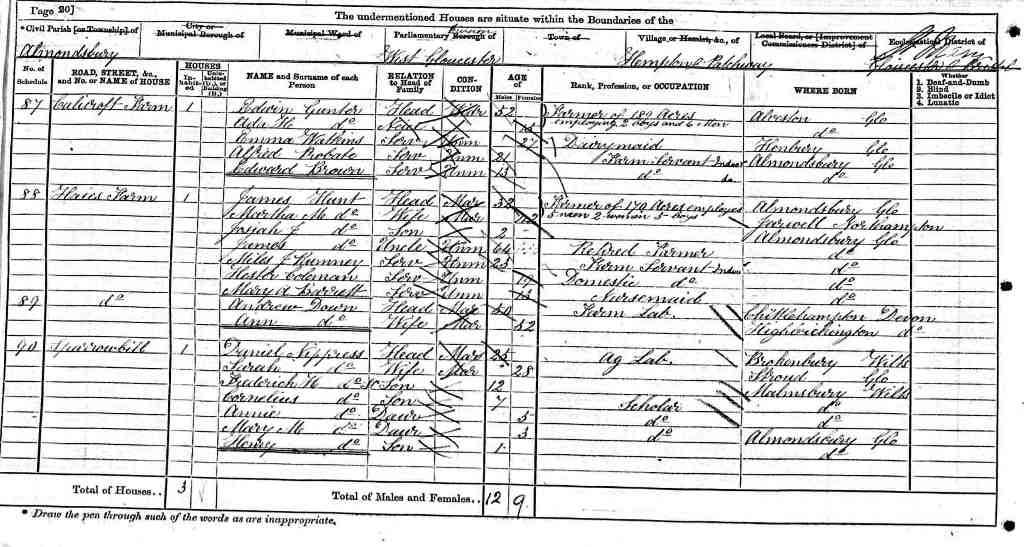 Page 20]
The undermentioned Houses are situate within the Boundaries of the
*Civil Parish [or Township] of
City or Municipal Borough of
Municipal Ward of
Parliamentary Borough of
Town of
Village or Hamlet, &c., of
Local Board, or [Improvement Commissioners District] of
Ecclesiastical District of
Almondsbury
West Gloucester
Hempton & Patchway
No. of Schedule
ROAD, STREET, &c., and No. or NAME of HOUSE
HOUSES
Inhabited
Uninhabited (U.), or Building (B.)
NAME and Surname of each Person
RELATION to Head of Family
CONDITION
AGE of
Males
Females
Rank, Profession, or OCCUPATION
WHERE BORN
Whether
1. Deaf-and-Dumb
2. Blind
3. Imbecile or Idiot
4. Lunatic
87 Farm 1 Edwin Gunter Head Mar 52 Farmer of 189 Acres employing 2 boys and 6 men Alveston Glo
Ada do Neice do
Emma Watkins Serv Unm 27 Dairymaid Henbury Glo
Alfred Probate Serv Unm 21 Farm Servant Indoor Almondsbury Glo
Edward Brown Serv Unm 15 do do do
88 Haies Farm 1 James Hunt Head Mar 32 Farmer of 179 Acres employs 5 men 2 women 3 boys Almondsbury Glo
Martha M. do Wife Mar Northampton
Josiah J do Son 2 Almondsbury Glo
James do Uncle Unm 64 Retired Farmer do
Miles J Serv Unm 25 Farm Servant Indoor do
Hester Coleman Serv Unm 19 Domestic do do
Mary A Serv Unm 13 Nursemaid do
89 do Andrew Down Head Mar 50 Farm Lab. Chittlehampton Devon
Ann do Wife Mar 52 do
90 Sparrowbill 1 Daniel Neppress Head Mar 25 Ag Lab. Brokenbury Wilts
Sarah do Wife Mar 28 Stroud Glo
Frederich W do Son 12 Malmsbury Wilts
Cornelius do Son 7 Scholar do
Annie do Dawr 5 do do
Mary M do Dawr 3 do Almondsbury Glo
Henry do Son 1 do
Total of Houses.. 3
Total of Males and Females.. 12 9
* Draw the pen through such of the words as are inappropriate.